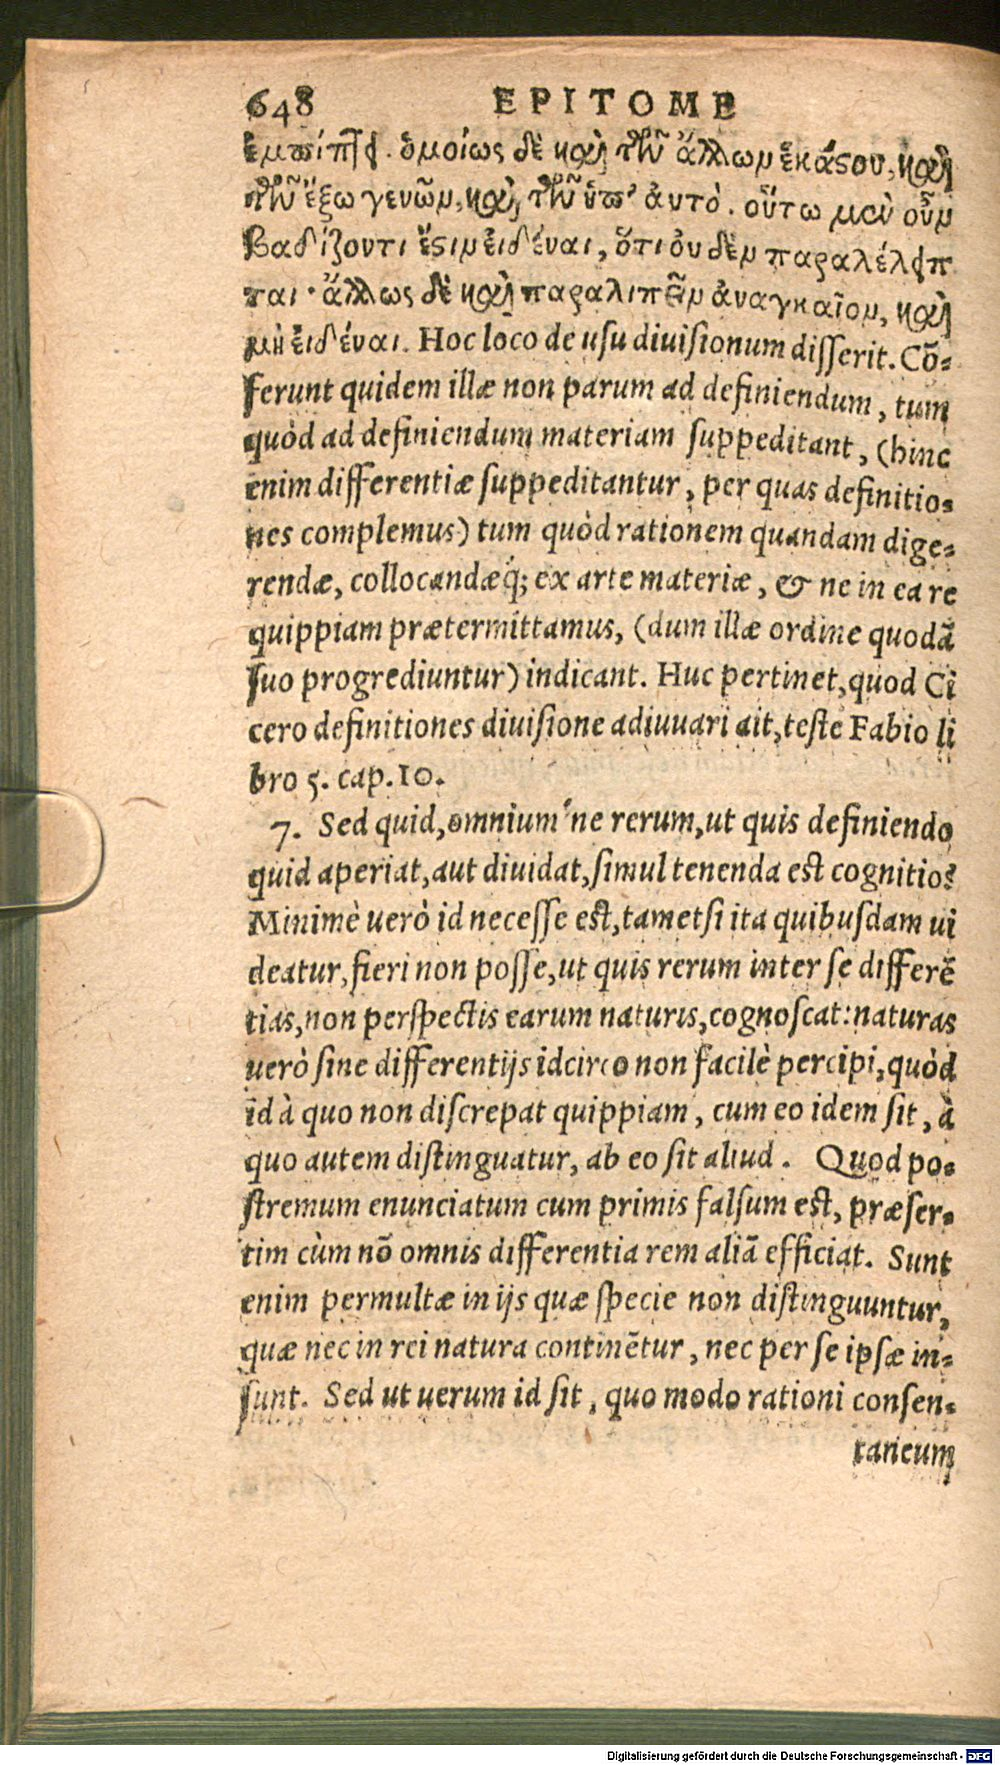 648 EPITOME
ἐμπίπτει. ὁμοίως δὲ καὶ τῶν ἄλλων ἑκάστου, καὶ
τῶν ἔξω γενῶν, καὶ τῶν ὑπ' ἀυτὸ. οὕτω μὲν οὖν
βαδίζοντι ἔστιν εἰδέναι, ὅτι οὐδὲν παραλέλειπ
ται· ἄλλως δὲ καὶ παραλιπεῖν ἀναγκαῖον, καὶ
μὴ εἰδέναι. Hoc loco de usu diuisionum disserit. Cõ-
ferunt quidem illæ non parum ad definiendum, tum
quòd ad definiendum materiam suppeditant, (hinc
enim differentiæ suppeditantur, per quas definitio-
nes complemus) tum quòd rationem quandam dige-
rendæ, collocandæq́; ex arte materiæ, & ne in ea re
quippiam prætermittamus, (dum illæ ordine quodã
suo progrediuntur) indicant. Huc pertinet, quod Ci
cero definitiones diuisione adiuuari ait, teste Fabio li
bro 5. cap. 10.
7. Sed quid, omnium´ne rerum, ut quis definiendo
quid aperiat, aut diuidat, simul tenenda est cognitio?
Minimè uerò id necesse est, tametsi ita quibusdam ui
deatur, fieri non posse, ut quis rerum inter se differẽ
tias, non perspectis earum naturis, cognoscat: naturas
uerò sine differentijs idcirco non facilè percipi, quòd
id à quo non discrepat quippiam, cum eo idem sit, à
quo autem distinguatur, ab eo sit aliud. Quod po-
stremum enunciatum cum primis falsum est, præser-
tim cùm nõ omnis differentia rem aliã efficiat. Sunt
enim permultæ in ijs quæ specie non distinguuntur,
quæ nec in rei natura continẽtur, nec per se ipsæ in-
sunt. Sed ut uerum id sit, quo modo rationi consen-
taneum
Digitalisierung gefördert durch die Deutsche Forschungsgemeinschaft - DFG